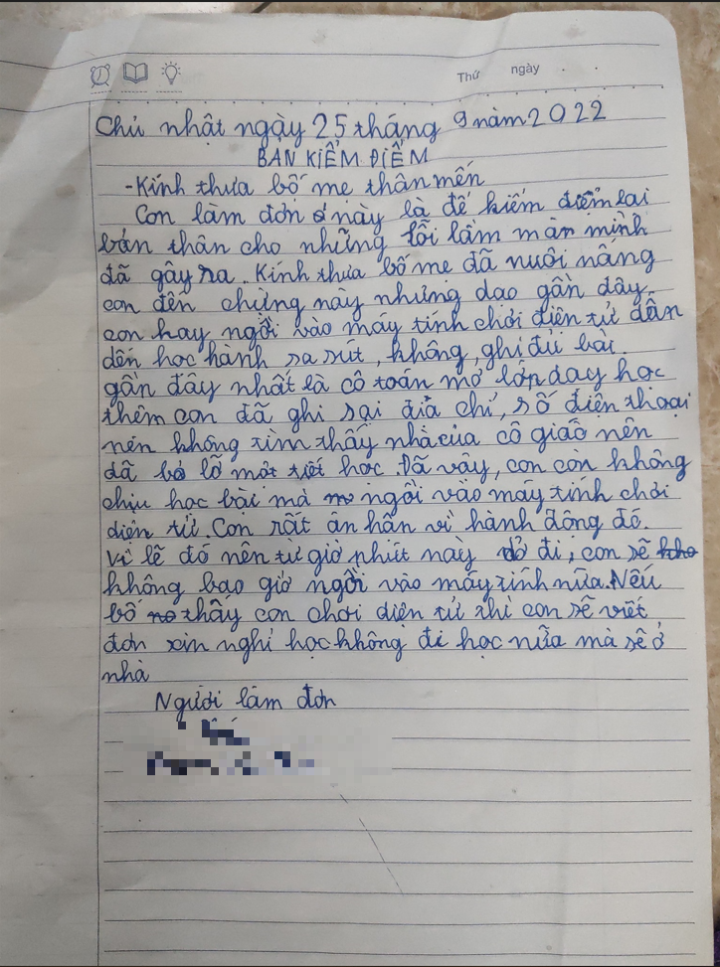 Thứ ngày
Chủ nhật ngày 25 tháng 9 năm 2022
BẢN KIỂM ĐIỂM
-Kính thưa bố mẹ thân mến
Con làm đơn này là để kiểm điểm lại
bản thân cho những lỗi lầm mà mình
đã gây ra. Kính thưa bố mẹ đã nuôi nấng
con đến chừng này nhưng dạo gần đây
con hay ngồi vào máy tính chơi điện tử dẫn
đến học hành sa sút, không ghi đủ bài
gần đây nhất là cô toán mở lớp dạy học
thêm con đã ghi sai địa chỉ, số điện thoại
nên không tìm thấy nhà của cô giáo nên
đã bỏ lỡ một tiết học. Đã vậy, con còn không
chịu học bài mà ngồi vào máy tính chơi
điện tử. Con rất ân hận vì hành động đó.
Vì lẽ đó nên từ giờ phút này trở đi, con sẽ
không bao giờ ngồi vào máy tính nữa. Nếu
bố thấy con chơi điện tử thì con sẽ viết
đơn xin nghỉ học không đi học nữa mà sẽ ở
nhà
Người làm đơn